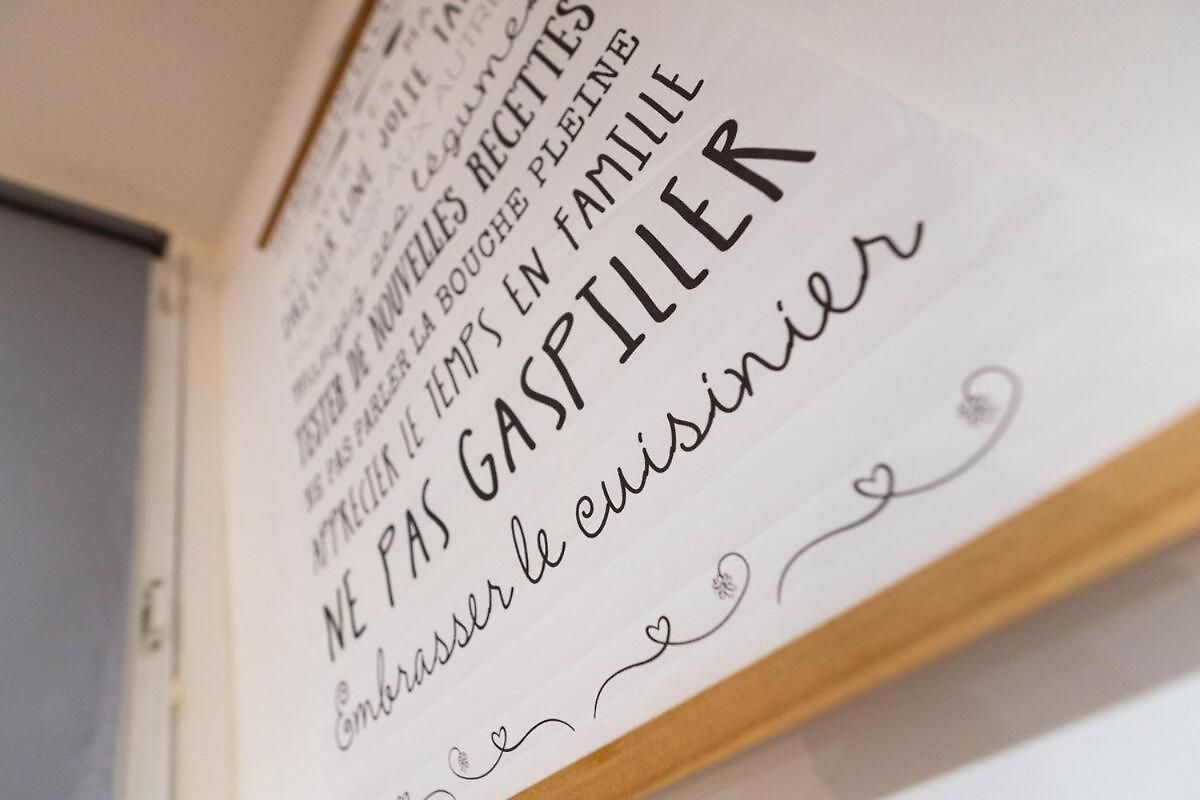 DRESSER UNE JOLIE
Manger ses légumes
TESTER DE NOUVELLES RECETTES
NE PAS PARLER LA BOUCHE PLEINE
APPRÉCIER LE TEMPS EN FAMILLE
NE PAS GASPILLER
Embrasser le cuisinier